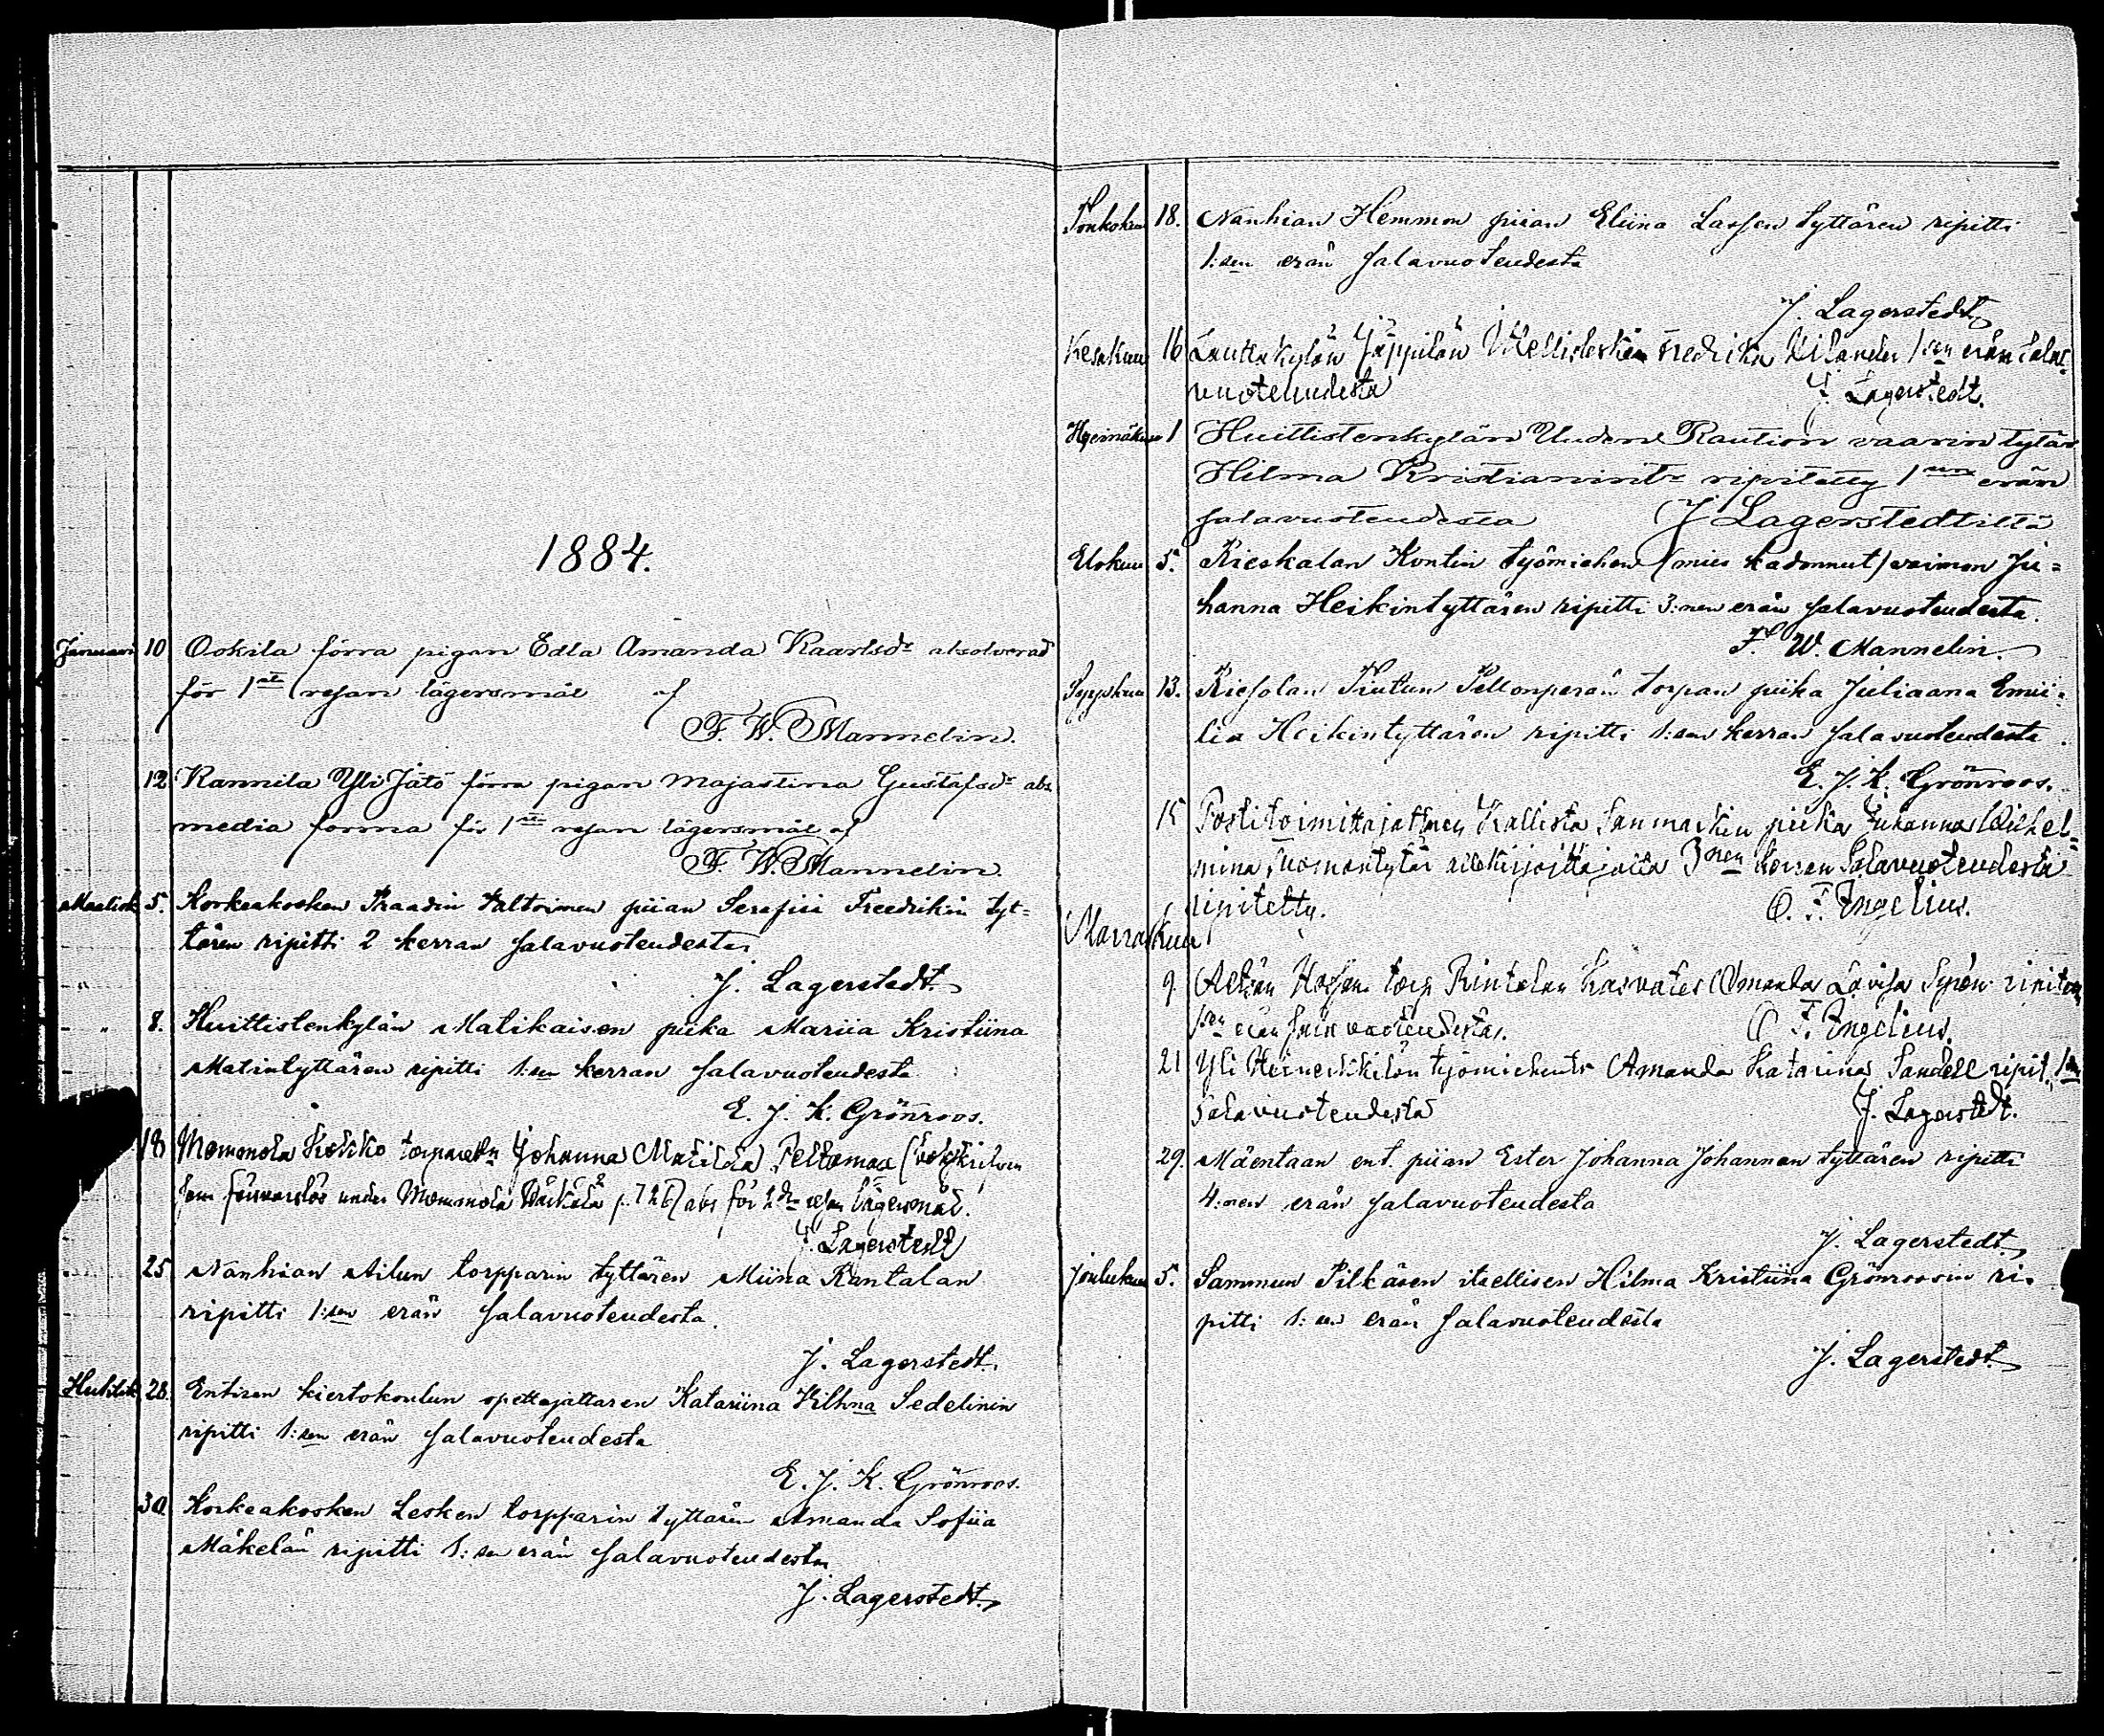 1884.
Januari 10 Ookila förra pigan Edla Amanda Kaarlsdr absolverad
för 1sta resan lägersmål af
F. W. Mannelin.
12 Kannila Yli Jätö förra pigan Majastina Gustafsdr abs.
media forma för 1sta resan lägersmål af
F. W. Mannelin.
Maalisk. 5. Korkeakosken Kraadin Valtoimen piian Serafiia Freedrikin tyt=
tären ripitti 2 kerran salavuoteudesta
J. Lagerstedt.
" " 8. Huittistenkylän Matikaisen piika Mariia Kristiina
Matintyttären ripitti 1:sen kerran salavuoteudesta
E. J. K. Grönroos.
18 Mommola torparedr Johanna Matilda Peltomaa
som försvarslös under Mommola p. 726) abs för 2dra resan lägersmål.
J. Lagerstedt
25 Nanhian Ailun torpparin tyttären Miina Rantalan
ripitti 1:sen erän salavuoteudesta.
J. Lagerstedt.
Huhtik. 28. Entisen kiertokoulun opettajattaren Katariina Vilhna Sedelinin
ripitti 1:sen erän salavuoteudesta
E. J. K. Grönroos.
30. Korkeakosken Lesken torpparin tyttären Amanda Sofiia
Mäkelän ripitti 1:sen erän salavuoteudesta
J. Lagerstedt.
Toukokuu 18. Nanhian Hemmon piian Eliina Lassen tyttären ripitti
1:sen erän salavuoteudesta
J. Lagerstedt
Kesäkuu 16 Lauttakylän Jäppilän Itsellisleskien Fredrika Kilander 1sen erän sala=
vuoteudesta J. Lagerstedt.
Heinäkuu 1 Huittistenkylän Uuden Raution vaarin tytär
Hilma Kristianintr ripitetty 1sen erän
salavuoteudesta J Lagerstedtiltä
Elokuu 5. Rieskalan Kontin työmiehen (mies kadonnut) vaimon Ju=
hanna Heikintyttären ripitti 3:nen erän salavuoteudesta.
F. W. Mannelin.
Syyskuu 13. Riesolan Kutun Pellonperän torpan piika Juliaana Emii=
lia Heikintyttären ripitti 1:sen kerran salavuoteudesta.
E. J. K. Grönroos.
15 Postitoimittajattaren Kallista Sanmarkin piika Juhanna Wilhel=
mina Tuomantytär allekirjoittajalta 3nen kerran Salavuoteudesta
ripitetty. O. F. Engelius.
Marraskuu
9. torp Rintalan kasvates Amanda Lovisa ripitetty
1sen erän salavuoteudesta. O F. Engelius.
21 Yli työmiehentr Amanda Katarina Sandell ripit. 1sen
salavuoteudesta J. Lagerstedt.
29. Mäentaan ent. piian Ester Johanna Johannan tyttären ripitti
4:nen erän salavuoteudesta
J. Lagerstedt.
Joulukuu 5. Sammun Pilkäsen itsellisen Hilma Kristiina Grönroosin ri=
pitti 1:sen erän salavuoteudesta
J. Lagerstedt